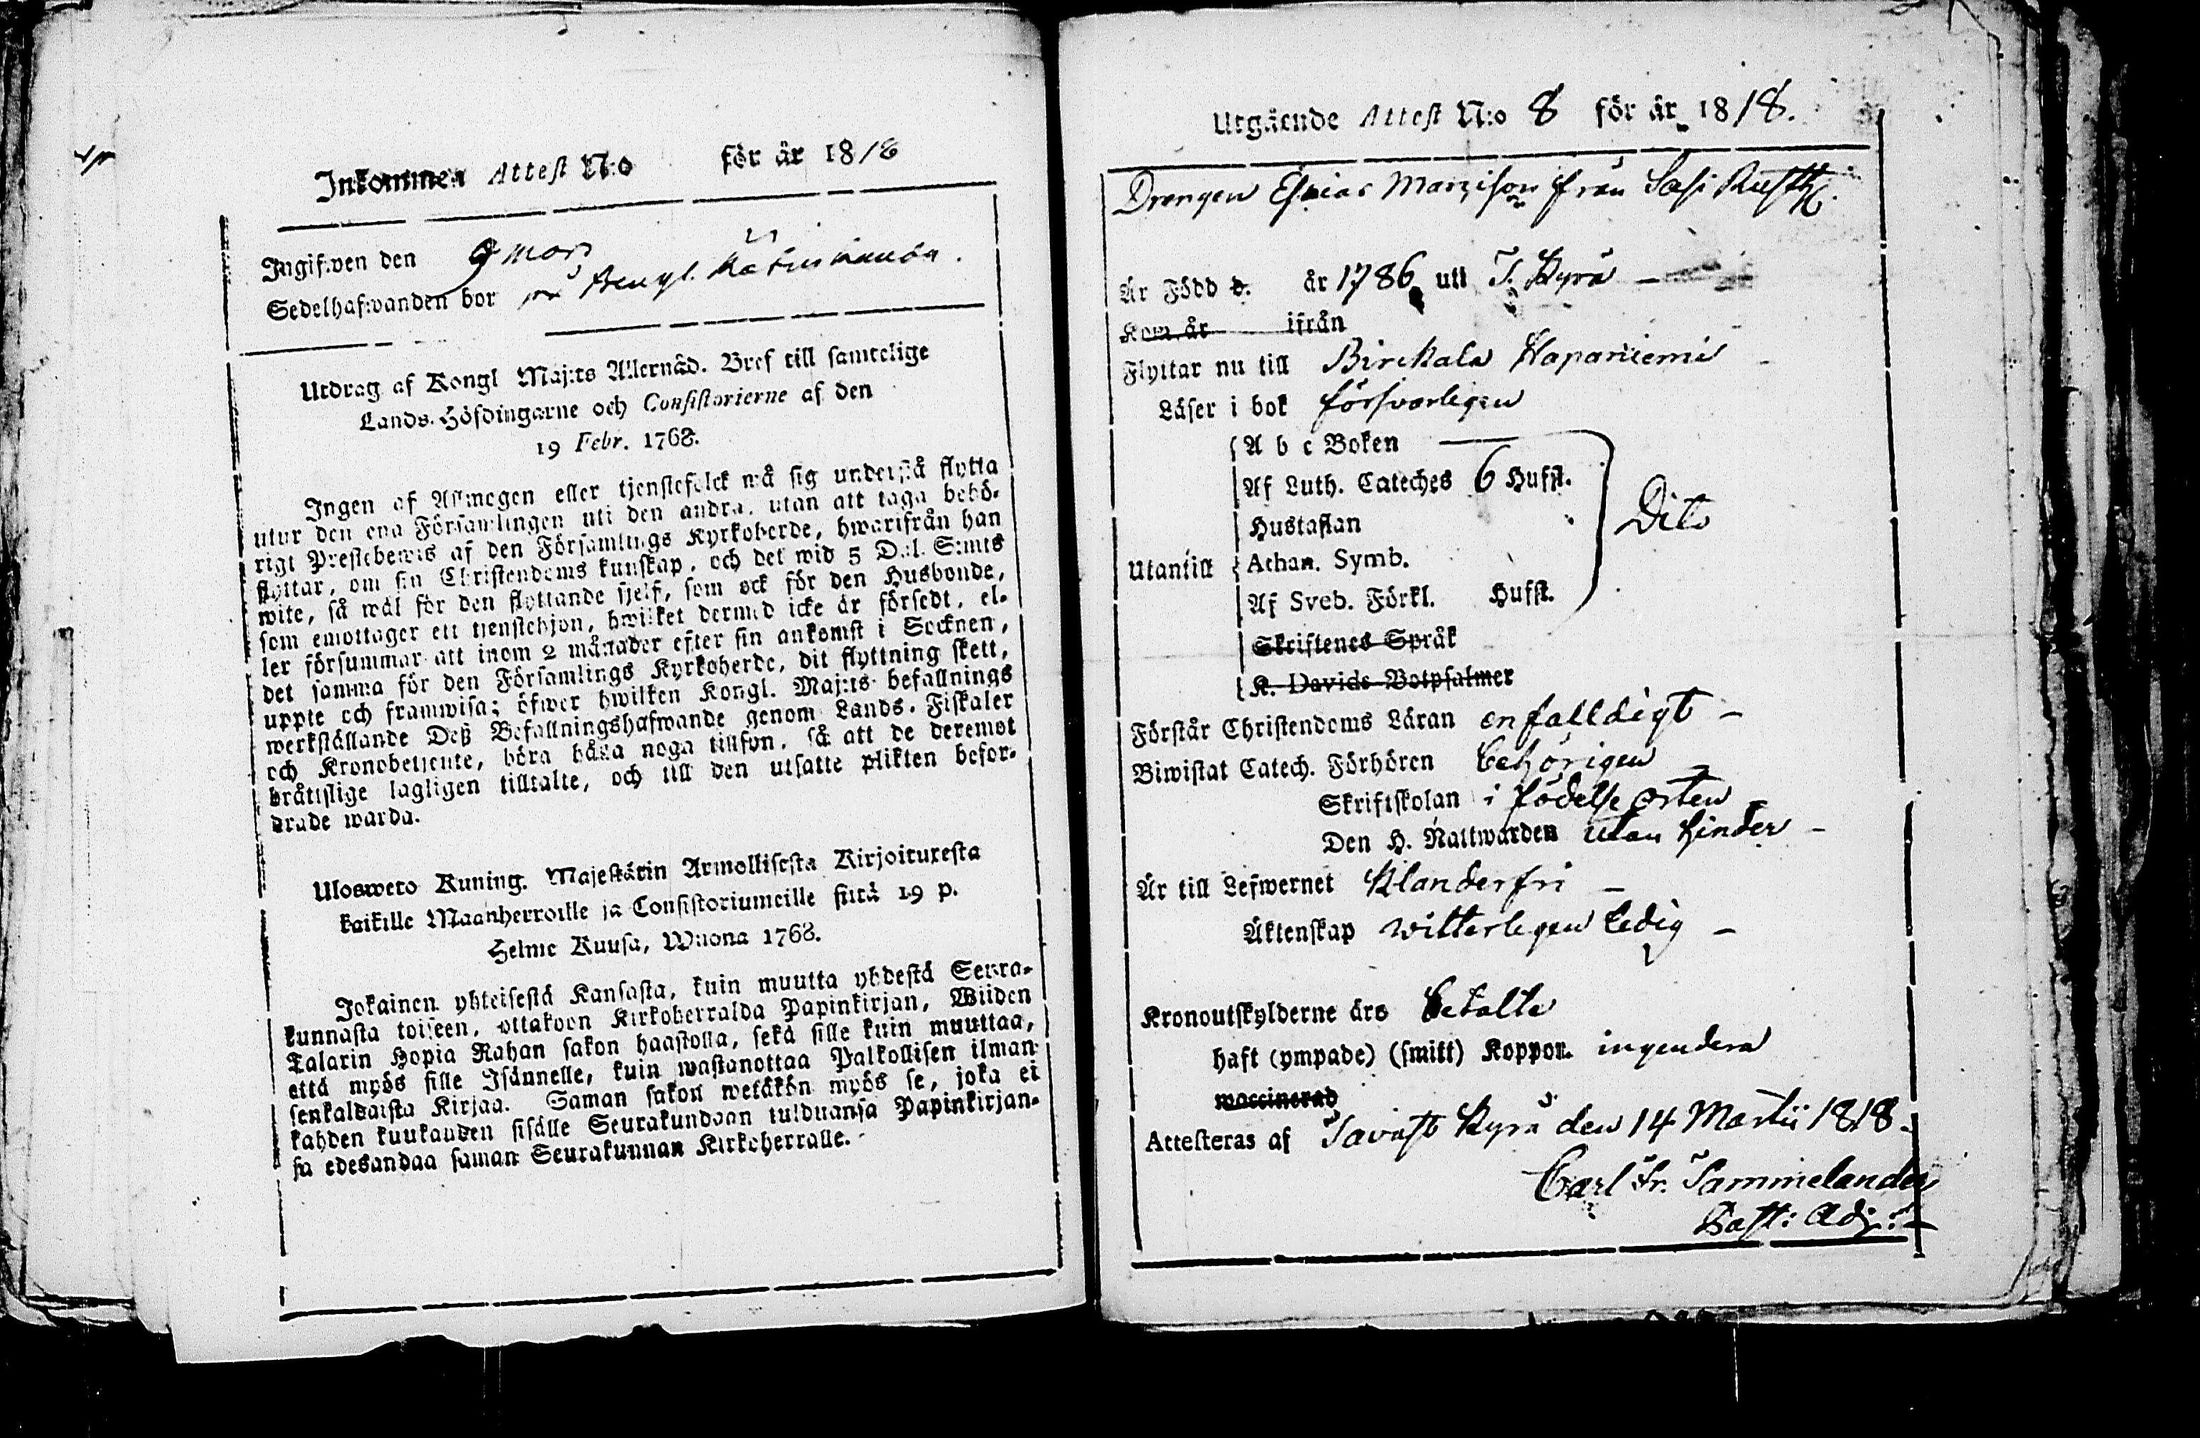 Inkommen Attest N:o för år 1818
Ingifwen den
Sedelhafwanden bor
Utdrag af Kongl Maj:ts Allernåd. Bref till samtelige
Lands-Höfdingarne och Consistorierne af den
19 Febr. 1768.
Ingen af Allmogen eller tjenstefolck må sig understå flytta
utur den ena Församlingen uti den andra, utan att taga behö-
rigt Prestebewis af den Församlings Kyrkoherde, hwarifrån han
flyttar, om sin Christendoms kunskap, och det wid 5 Dal. S:mts
wite, så wäl för den flyttande sjelf, som ock för den Husbonde,
som emottager ett tjenstehjon, hwilket dermed icke är försedt, el-
ler försummar att inom 2 månader efter sin ankomst i Socknen,
det samma för den Församlings Kyrkoherde, dit flyttning skett,
uppte och framwisa; öfwer hwilken Kongl. Maj:ts befallnings
werkställande Deß Befallningshafwande genom Lands-Fiskaler
och Kronobetjente, böra hålla noga tillsyn, så att de deremot
bråtislige lagligen tilltalte, och till den utsatte plikten befor-
drade warda.
Uloswero Kuning. Majestätin Armollisesta Kirjoituresta
kaikille Maanherroille ja Consistoriumeille siitä 19 p.
Helme Kuusa, Wuona 1768.
Jokainen yhteisestä Kansasta, kuin muutta yhdestä Seura-
kunnasta toiseen, ottakoon Kirkoherralda Papinkirjan, Wiiden
Talarin Hopia Rahan sakon haastolla, sekä sille kuin muuttaa,
että myös sille Isännelle, kuin wastanottaa Palkollisen ilman
senkaldaista Kirjaa. Saman sakon wetäkön myös se, joka ei
kahden kuukauden sisälle Seurakundaan tulduansa Papinkirjan-
sa edesandaa saman Seurakunnan Kirkoherralle.
Utgående Attest N:o 8 för år 1818.
Drengen Esaias från
Är Född d. år 1786 uti T. Kyrö
Kom år ifrån
Flyttar nu till Birckala Hapaniemi
Läser i bok försvarligen
A b c Boken
Af Luth. Cateches 6 Hufst.
Hustaflan
Dito
Utantill Athan. Symb.
Af Sveb. Förkl. Hufst.
Skriftenes Språk
K. Davids Botpsalmer
Förstår Christendoms Läran enfalldigt
Biwistat Catech. Förhören behörigen
Skriftskolan i födelse orten
Den H. Nattwarden utan hinder
Är till Lefwernet Klanderfri
Äktenskap witterligen ledig
Kronoutskylderne äro betalte
haft (ympade) (smitt) Koppor. ingendera
waccinerad
Attesteras af Tavast Kyrö den 14 Martii 1818.
Carl Fr. Tammelander
Past: Adj: